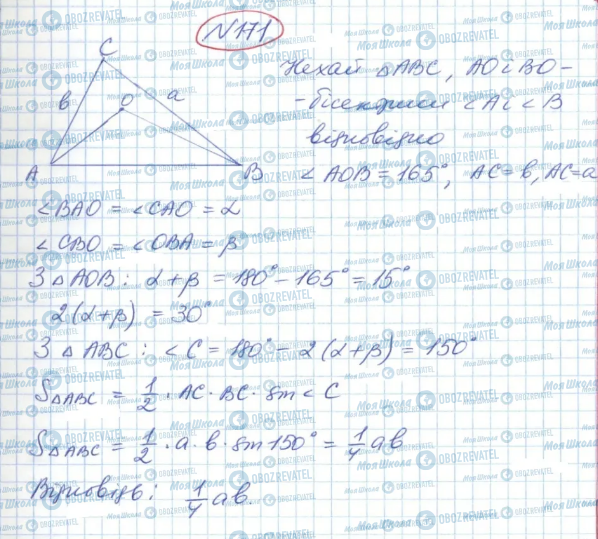 N 171
C
Нехай △ABC, AO і BO -
в O a
- бісектриси <A і <B
відповідно
A B
< AOB = 165°, AC = в, AC = a
<BAO = <CAO = α
<CBO = <OBA = β
З △AOB: α+β = 180° - 165° = 15°
2(α+β) = 30°
З △ABC: <C = 180° - 2(α+β) = 150°
S△ABC = 1/2 · AC · BC · sin < C
S△ABC = 1/2 · a · в · sin 150° = 1/4 aв
Відповідь: 1/4 aв.